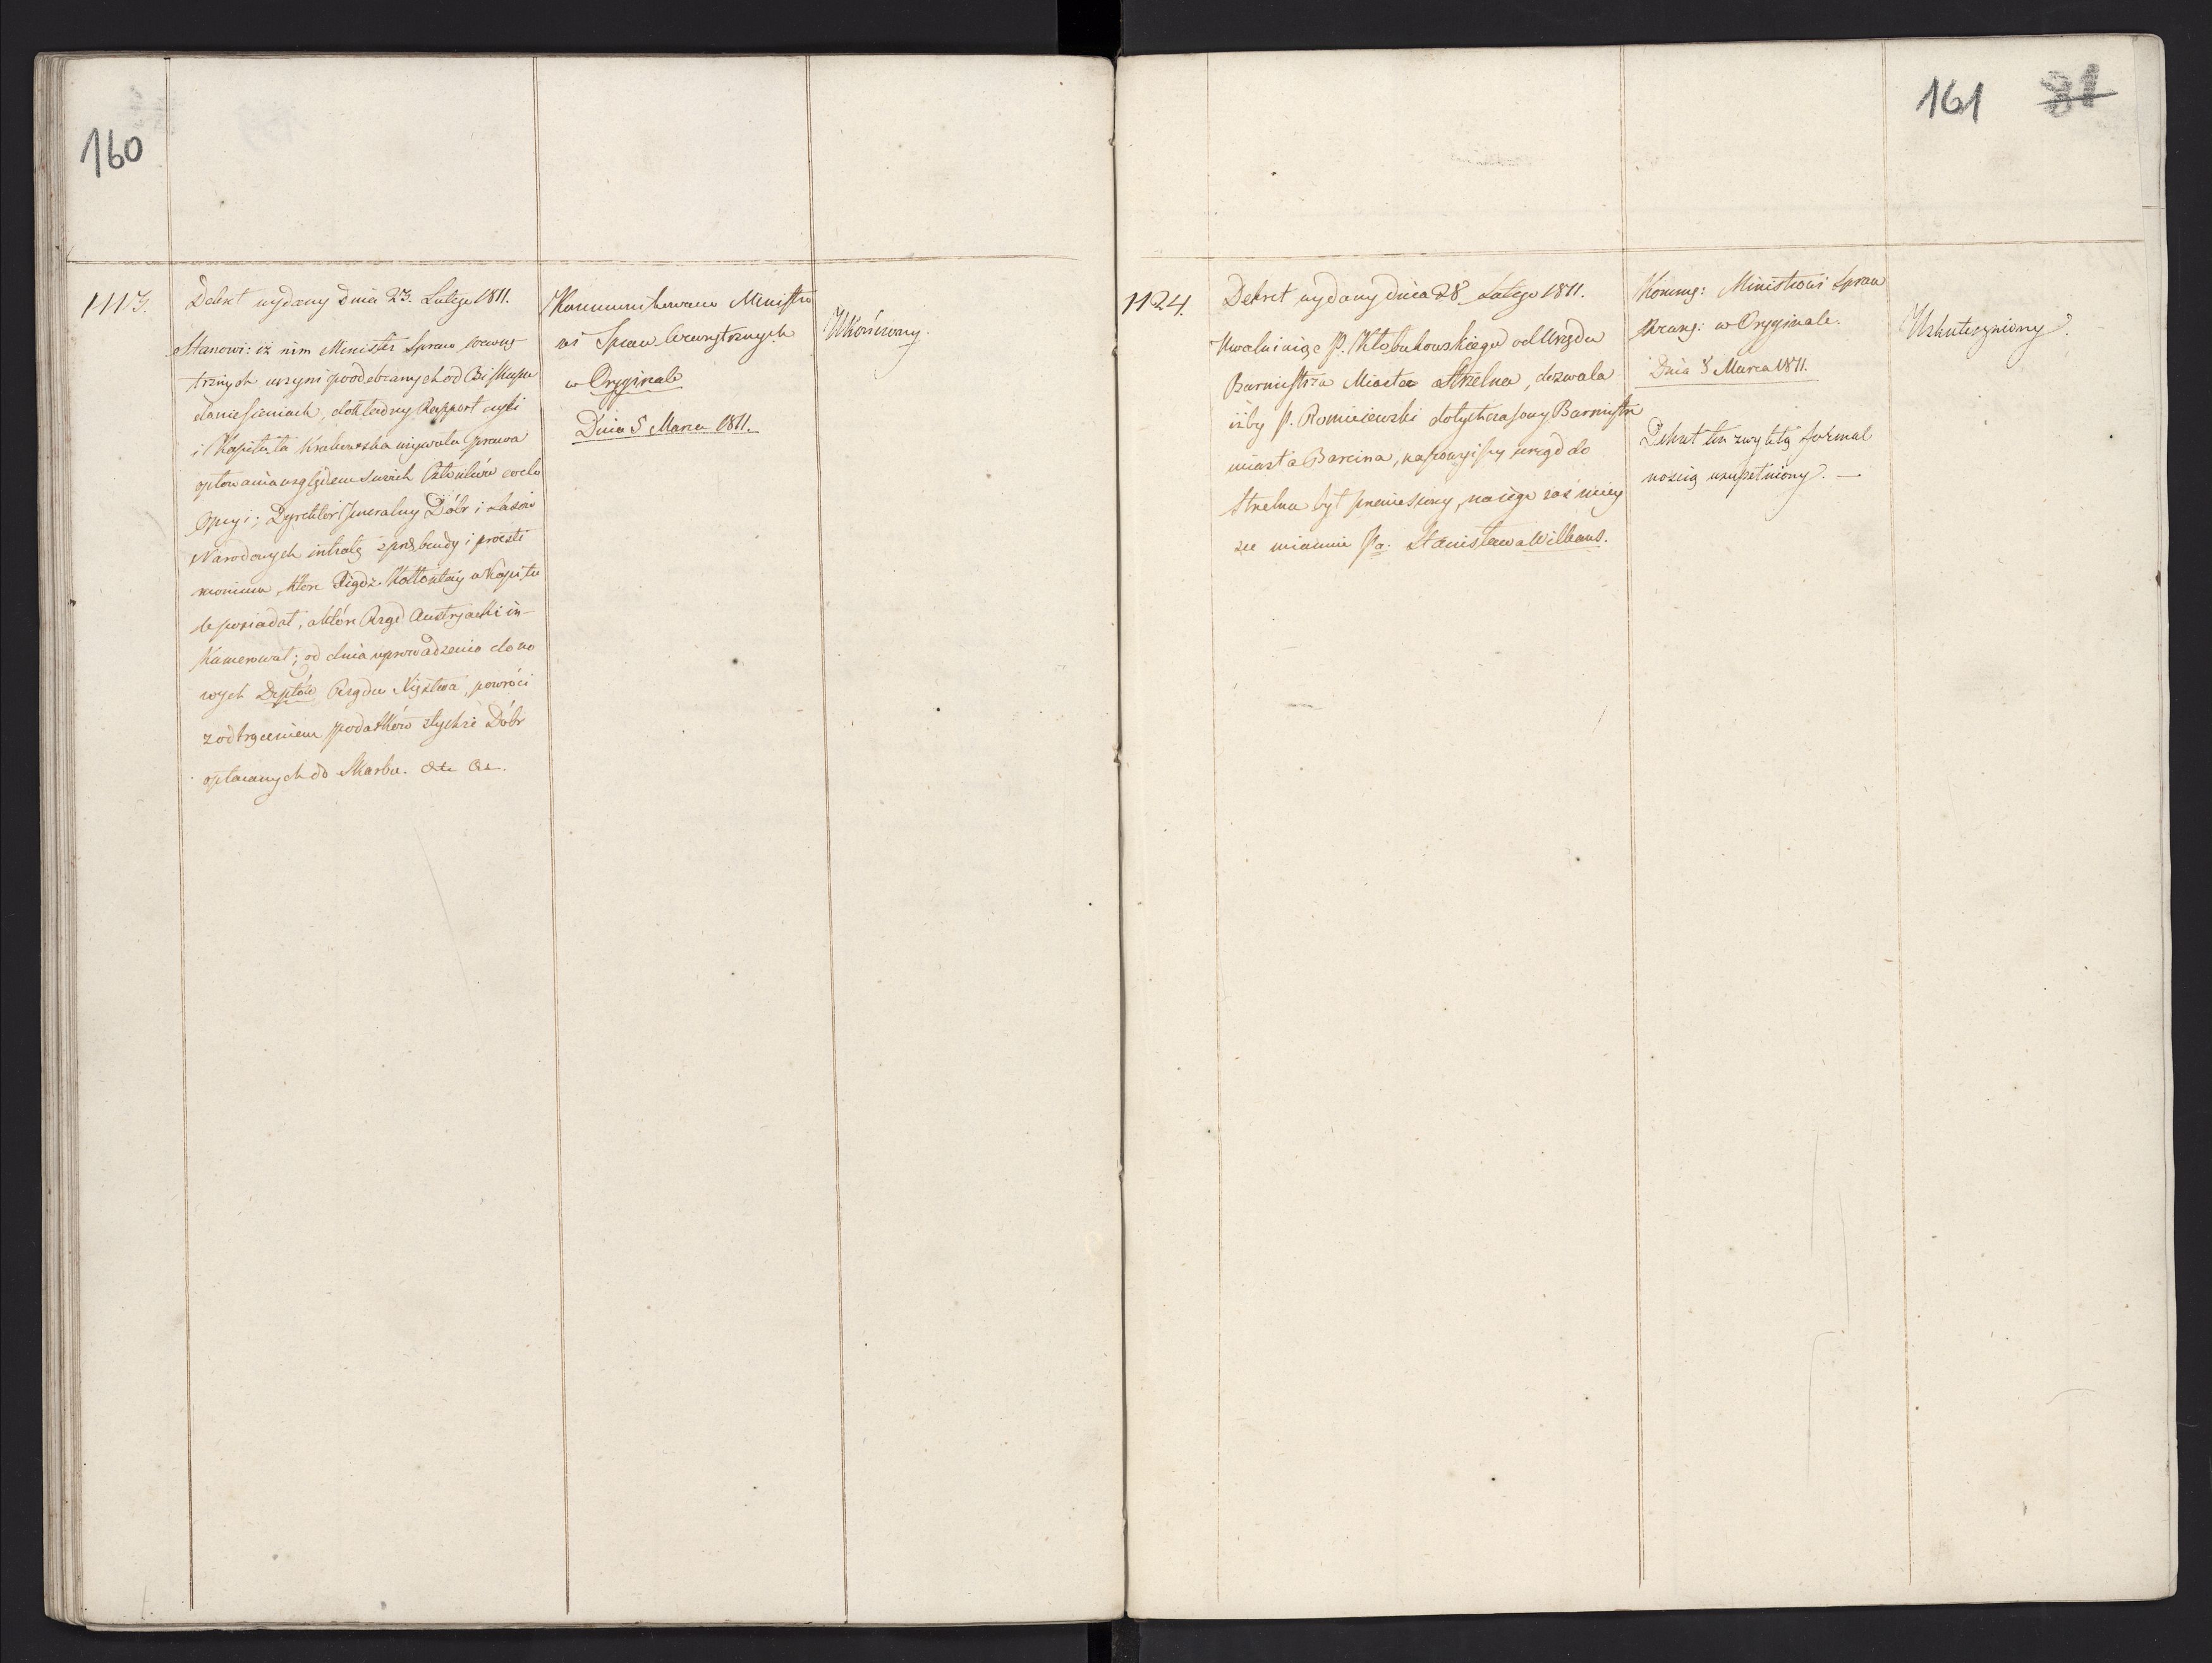 160
1113.
Dekret wydany Dnia 23. Lutego 1811.
Stanowi: iż nim Minister Spraw wewnę-
trznych uczyni po odebranych od Biskupa
doniesieniach, dokładny Rapport czyli
i Kapituła Krakowska używała prawa
optowania względem swoich Członków
Opcyi; Dyrektor Jeneralny Dóbr i Lasów
Narodowych intratę z prebendy i
moniów, które Xiądz Kołłontaj w Kapitu
le posiadał, a które Rząd Austryacki in-
kamerował; od dnia wprowadzenia do no
wych Deptów Rządu Xięstwa, powróci
z odtrąceniem podatków z tychże Dóbr
opłacanych do Skarbu. &c &c.
Kommunikowano Ministro
wi Spraw Wewnętrznych
w Oryginale
Dnia 5 Marca 1811.
Ukończony.
161 81
1124.
Dekret wydany dnia 28 Lutego 1811.
Uwalniaiąc P. Kłobukowskiego od Urzędu
Burmistrza Miasta Strzelna, dozwala
iżby P. Romieiewski dotychczasowy Burmistrz
miasta Barcina, na powyższy urząd do
Strzelna był przeniesiony, na iego zaś miey
sce mianuie Pa. Stanisława Wilkans.
Kommg: Ministrowi Spraw
Wewng: w Oryginale.
Dnia 8 Marca 1811.
Dekret ten zwykłą formal
nością uzupełniony. —
Uskuteczniony.